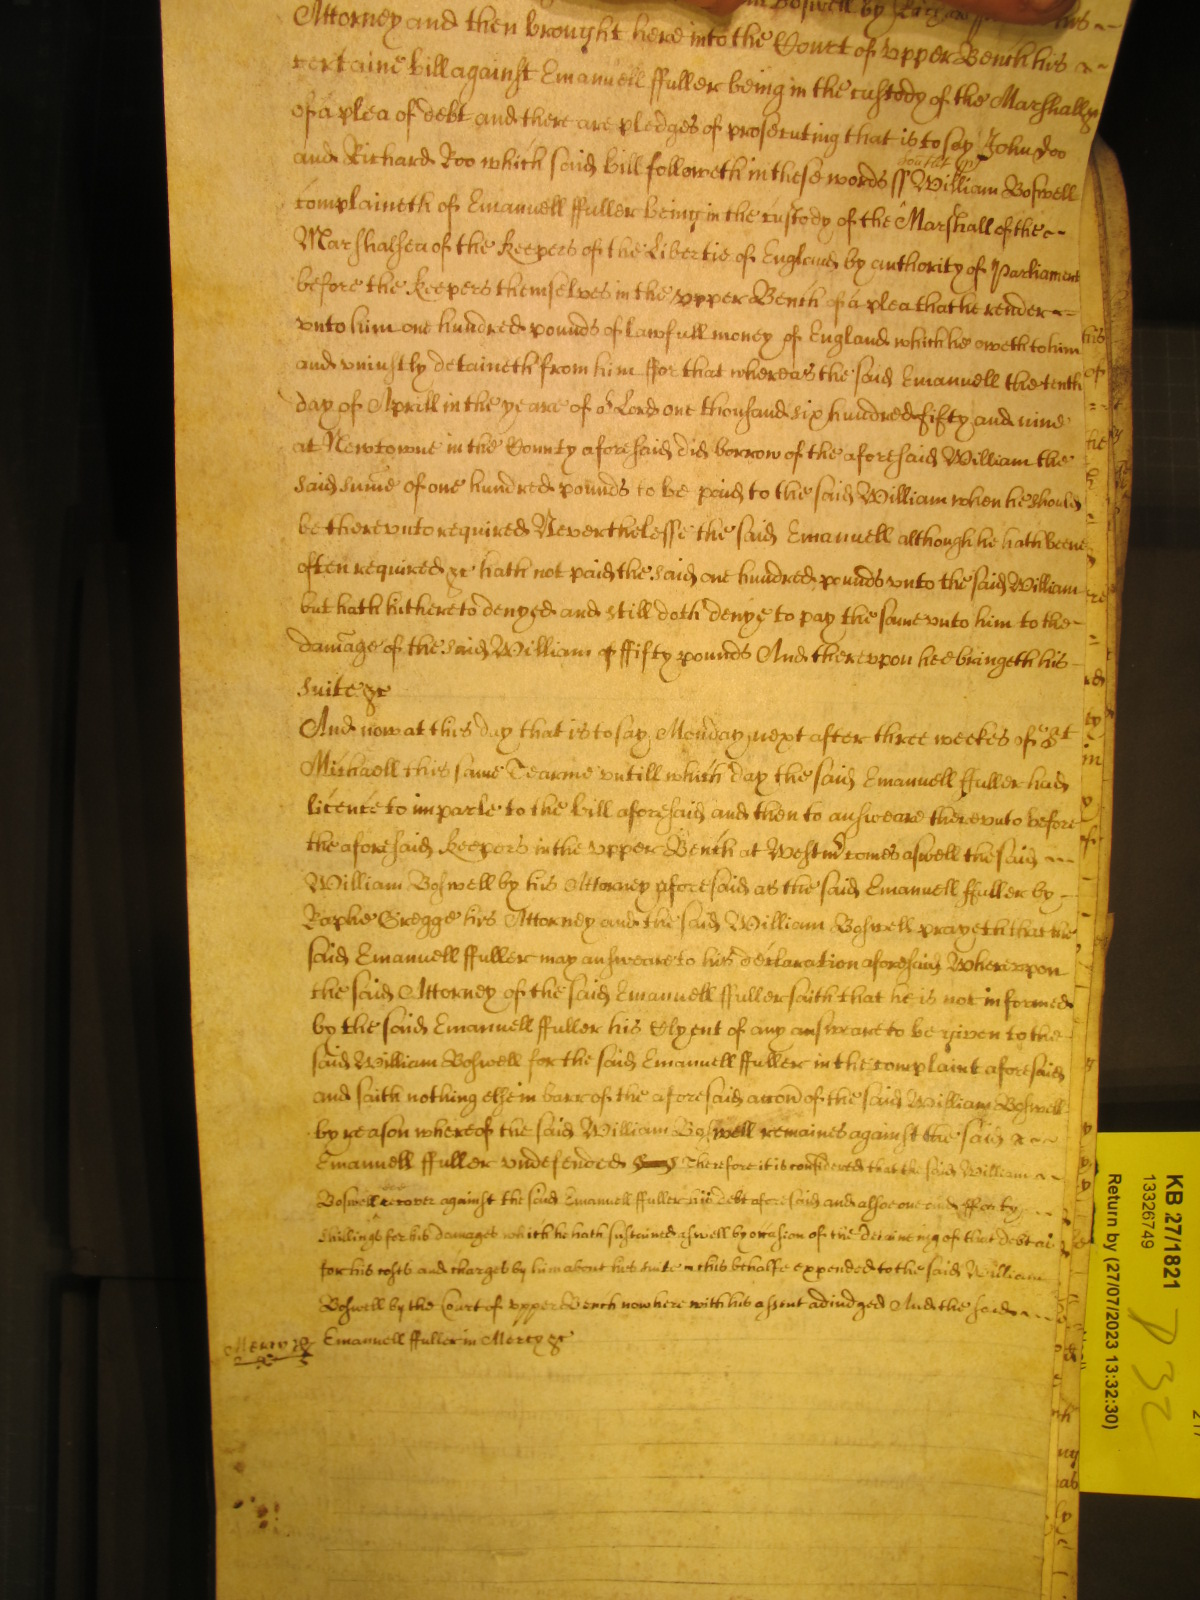 Boswell by his
Attorney and then brought here into the Court of vpper Bench his
certaine bill against Emanuell ffuller being in the custody of the Marshall &
of a plea of debt and there are pledges of prosecuting that is to say John doo
and Richard Roo which said bill followeth in these words ss William Boswell
complaineth of Emanuell ffuller being in the custody of the Marshall of the
Marshalsea of the keepers of the Libertie of England by authority of Parliament
before the keepers themselves in the vpper Bench of a plea that he render
vnto him one hundred pounds of lawfull money of England which he oweth to him
and vniustly detaineth from him ffor that whereas the said Emanuell the tenth
day of Aprill in the yeare of or Lord one thousand six hundred fifty and nine
at Newtowne in the County aforesaid did borrow of the aforesaid William the
said sume of one hundred pounds to be paid to the said William when he should
be therevnto required Neverthelesse the said Emanuell although he hath beene
often required &c hath not paid the said one hundred pounds vnto the said William
but hath hithereto denyed and still doth denye to pay the same vnto him to the
damage of the said William of ffifty pounds And therevpon hee bringeth his
suite &c
And now at this day that is to say Monday next after three weekes of St
Michaell this same Tearme vntill which day the said Emanuell ffuller had
licence to imparle to the bill aforesaid and then to answeare therevnto before
the aforesaid keepers in the vpper Bench at Westmr comes aswell the said
William Boswell by his Attorney aforesaid as the said Emanuell ffuller by
Raphe Gregge his Attorney and the said William Boswell prayeth that the
said Emanuell ffuller may answeare to his declaration aforesaid Wherevpon
the said Attorney of the said Emanuell ffuller saith that he is not informed
by the said Emanuell ffuller his Clyent of any answeare to be given to the
said William Boswell for the said Emanuell ffuller in the complaint aforesaid
and saith nothing else in barr of the aforesaid accon of the said William Boswell
by reason whereof the said William Boswell remaines against the said
Emanuell ffuller vndefended Therefore it is considered that the said William
Boswell recover against the said Emanuell ffuller his debt aforesaid and alsoe one and fforty
shillings for his damages which he hath sustained aswell by occasion of the detaineing of that debt as
for his costs and charges by him about his suite in this behalfe expended to the said William
Boswell by the Court of vpper Bench now here with his assent adiudged And the said
Mercy &c Emanuell ffuller in Mercy &c
KB 27/1821
13326749
Return by (27/07/2023 13:32:30)
P 32